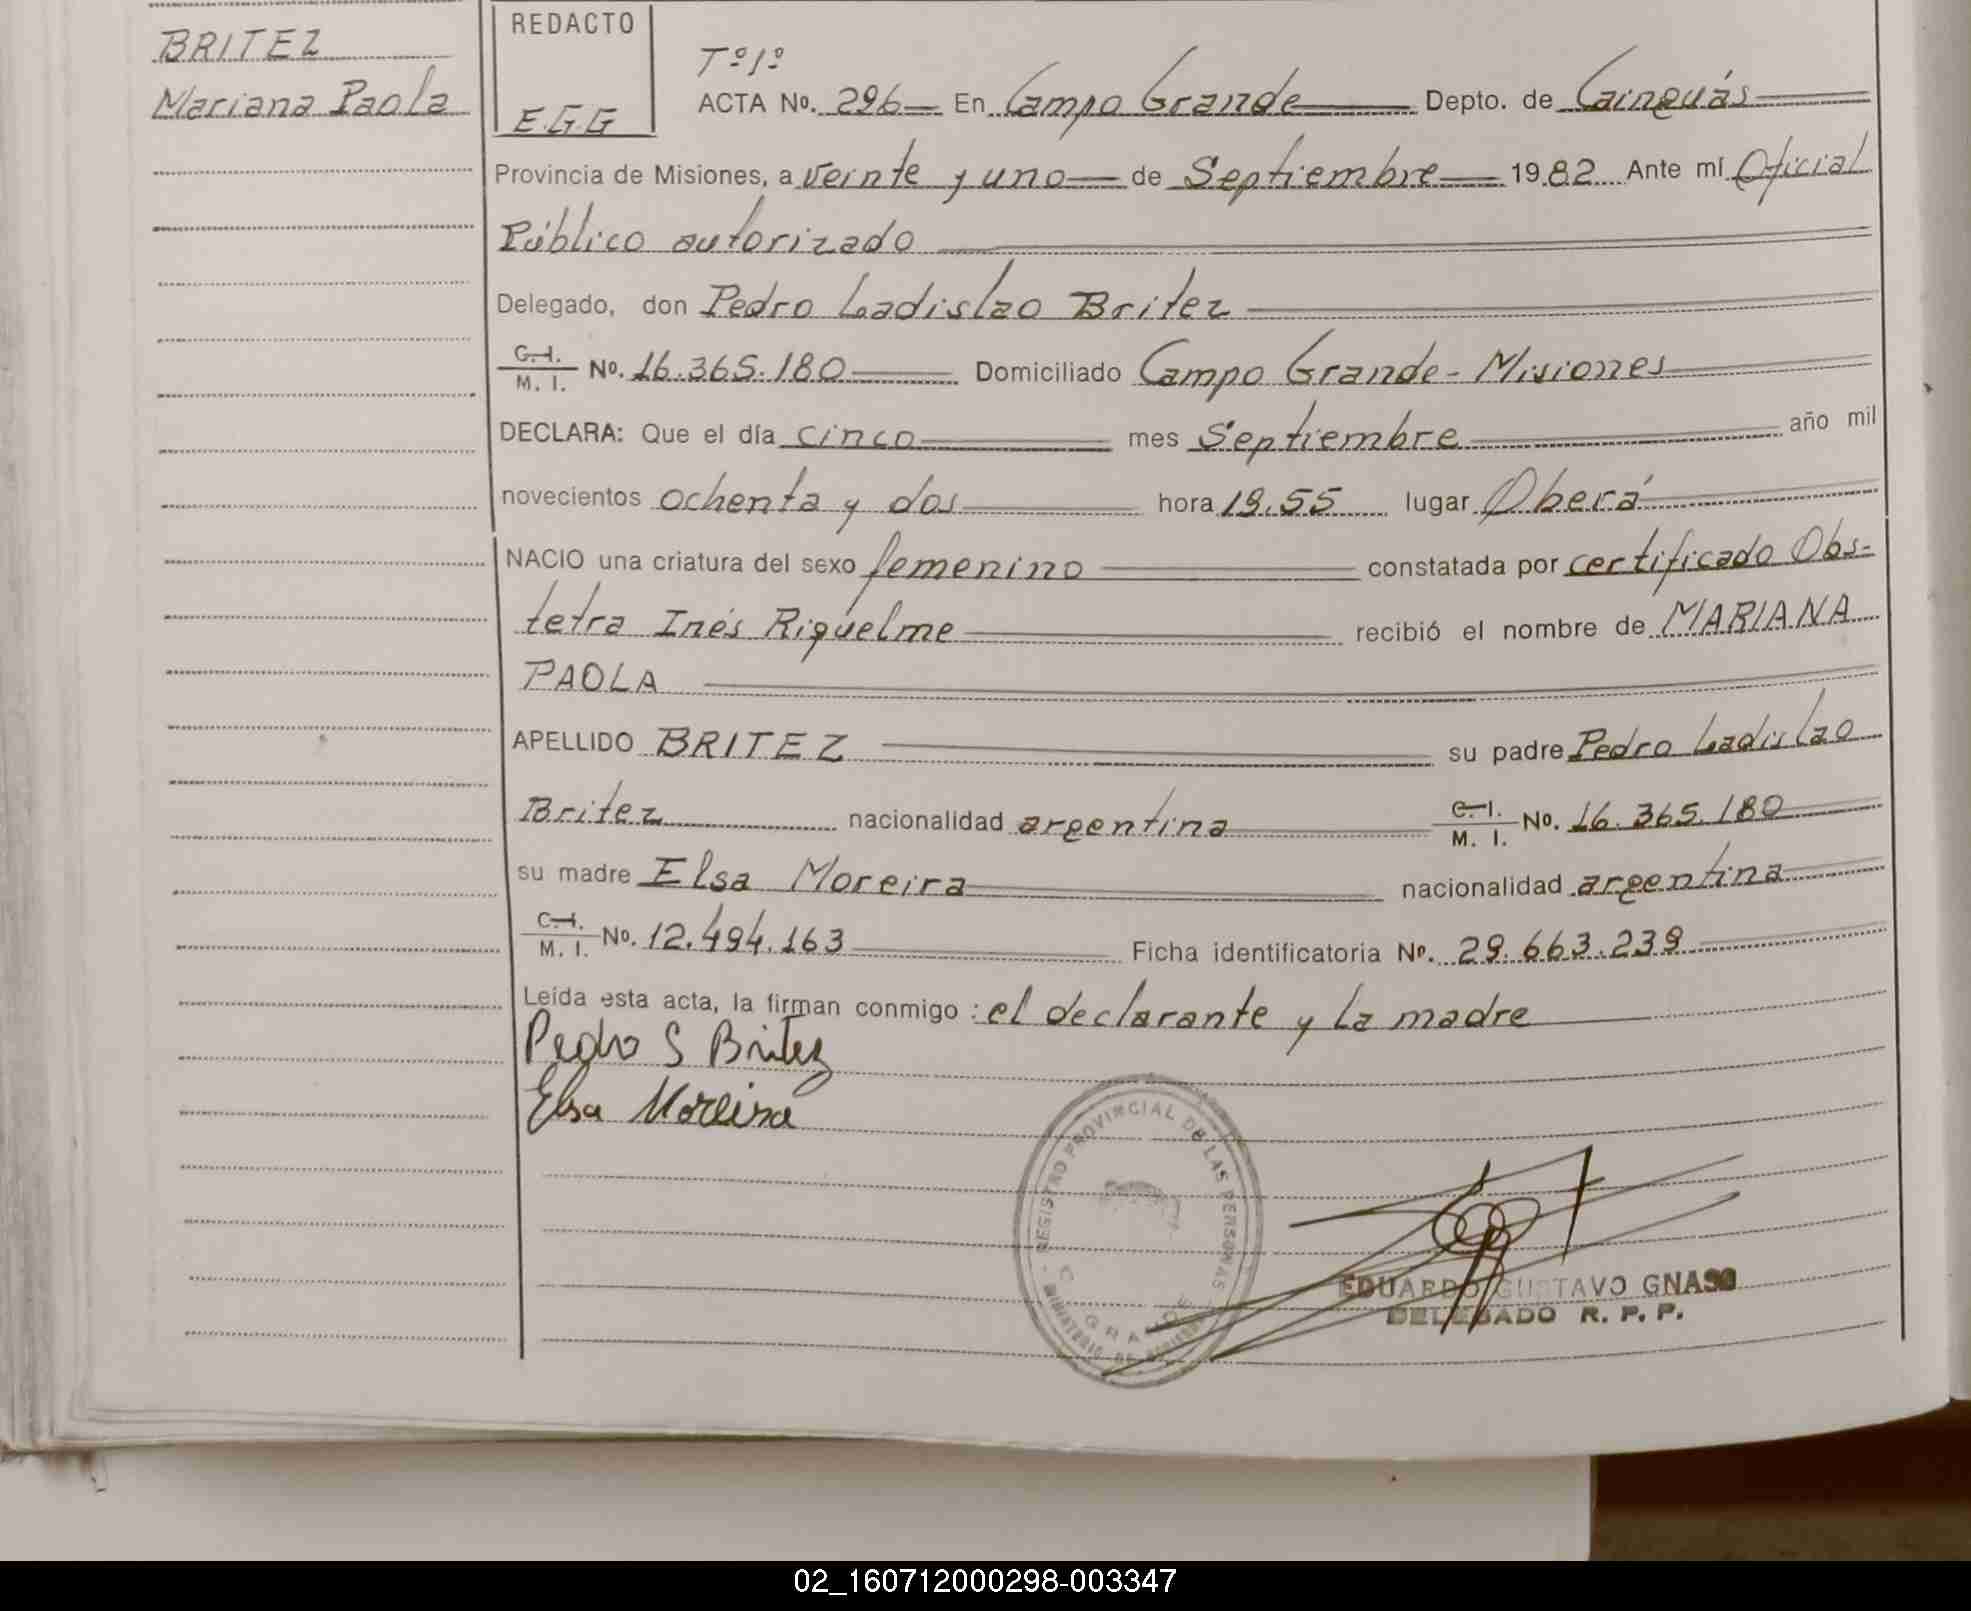 BRITEZ
Mariana Paola
REDACTO
E.G.G
Tº 1º
ACTA No. 296 En Campo Grande Depto. de Cainguás
Provincia de Misiones, a veinte y uno de Septiembre 1982 Ante mí Oficial
Público autorizado
Delegado, don Pedro Ladislao Britez
C.I. M. I. No. 16.365.180 Domiciliado Campo Grande - Misiones
DECLARA: Que el día cinco mes Septiembre año mil
novecientos ochenta y dos hora 19.55 lugar Oberá
NACIO una criatura del sexo femenino constatada por certificado Obs-
tetra Inés Riquelme recibió el nombre de MARIANA
PAOLA
APELLIDO BRITEZ su padre Pedro Ladislao
Britez nacionalidad argentina C.I. M. I. No. 16.365.180
su madre Elsa Moreira nacionalidad argentina
C.I. M. I. No. 12.494.163 Ficha identificatoria Nº. 29.663.239
Leída esta acta, la firman conmigo : el declarante y la madre
Pedro S Britez
Elsa Moreira
REGISTRO PROVINCIAL DE LAS PERSONAS
EDUARDO GUSTAVO GNASS
DELEGADO R. P. P.
02_160712000298-003347